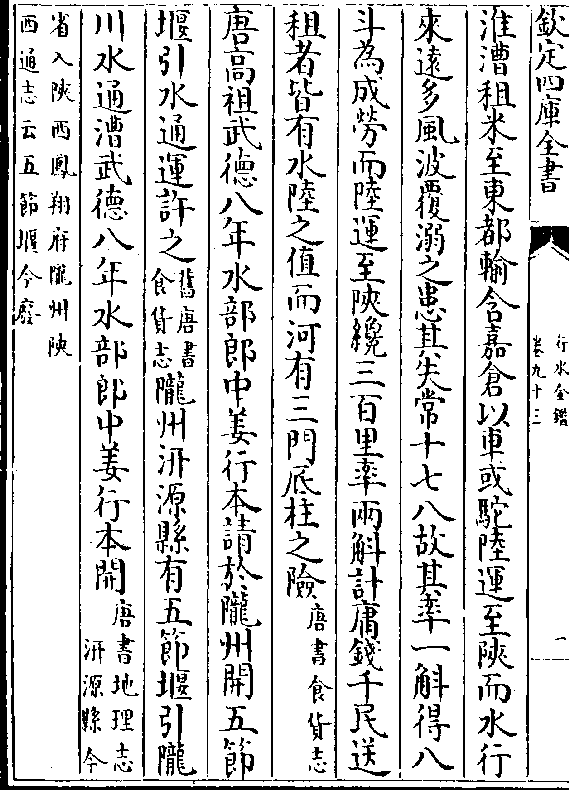 欽定四庫全書
行水金鑑
卷九十三
一
淮漕租米至東都輸含嘉倉以車或駝陸運至陝而水行
來遠多風波覆溺之患其失常十七八故其率一斛得八
斗為成勞而陸運至陝纔三百里率兩斛計庸錢千民送
租者皆有水陸之值而河有三門底柱之險唐書食貨志
唐高祖武德八年水部郎中姜行本請於隴州開五節
堰引水通運許之舊唐書食貨志隴州汧源縣有五節堰引隴
川水通漕武德八年水部郎中姜行本開唐書地理志汧源縣今
省入陝西鳳翔府隴州陝
西通志云五節堰今廢